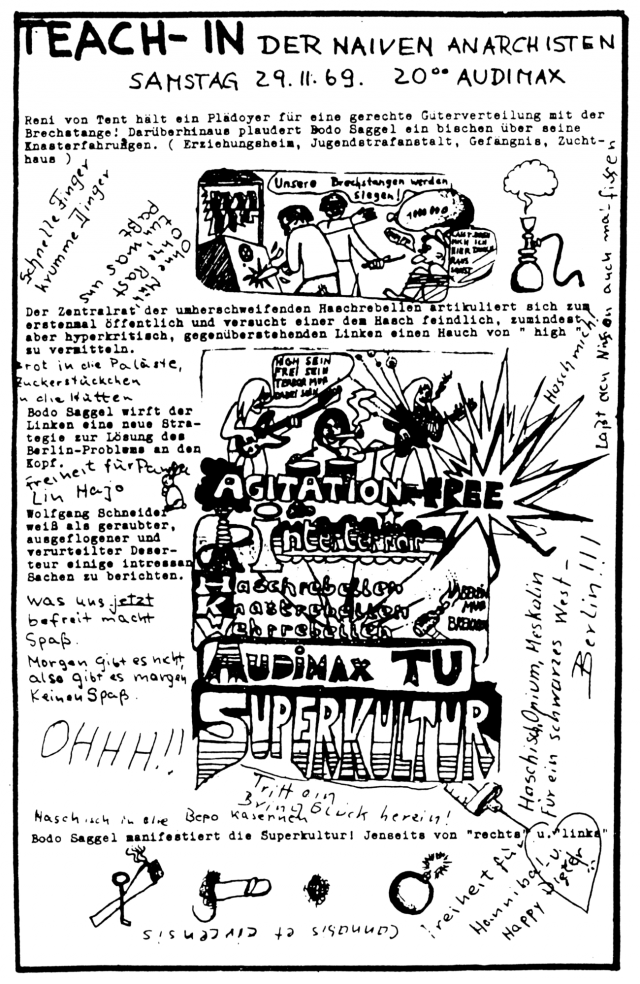 TEACH-IN DER NAIVEN ANARCHISTEN
SAMSTAG 29.11.69. 20°° AUDIMAX
Reni von Tent hält ein Plädoyer für eine gerechte Güterverteilung mit der
Brechstange! Darüberhinaus plaudert Bodo Saggel ein bischen über seine
Knasterfahrungen. ( Erziehungsheim, Jugendstrafanstalt, Gefängnis, Zucht-
haus )
Schnelle Finger
krumme Dinger
Ohne Rast
uns
Spaß
Unsere Brechstangen werden
siegen!
Hasch mich!
Laßt den Nasen auch
Der Zentralrat der umherschweifenden Haschrebellen artikuliert sich zum
erstenmal öffentlich und versucht einer dem Hasch feindlich, zumindest
aber hyperkritisch, gegenüberstehenden Linken einen Hauch von " high "
zu vermitteln.
Brot in die Paläste,
Zuckerstückchen
in die Hütten
Bodo Saggel wirft der
Linken eine neue Stra-
tegie zur Lösung des
Berlin-Problems an den
Kopf.
Freiheit für
Lin Hajo
Wolfgang Schneider
weiß als geraubter,
ausgeflogener und
verurteilter Deser-
teur einige intressan
Sachen zu berichten.
Was uns jetzt
befreit macht
Spaß.
Morgen gibt es nicht
also gibt es morgen
keinen Spaß.
OHHH!!
HIGH SEIN
FREI SEIN
TERROR MUß
DABEI SEIN
AGITATION-FREE
Interterror
Haschrebellen
Knastrebellen
Wehrrebellen
BERLIN
MUß
BRENNEN
AUDIMAX TU
SUPERKULTUR
Haschisch, Opium, Meskalin
Für ein schwarzes West-
Berlin!!!
Tritt ein
Bring Glück herein!
Haschisch in die Bepo Kasernen
Bodo Saggel manifestiert die Superkultur! Jenseits von "rechts" u. "links"
Freiheit für
Hannibal u.
Happy Dieter!!
Cannabis et circensis